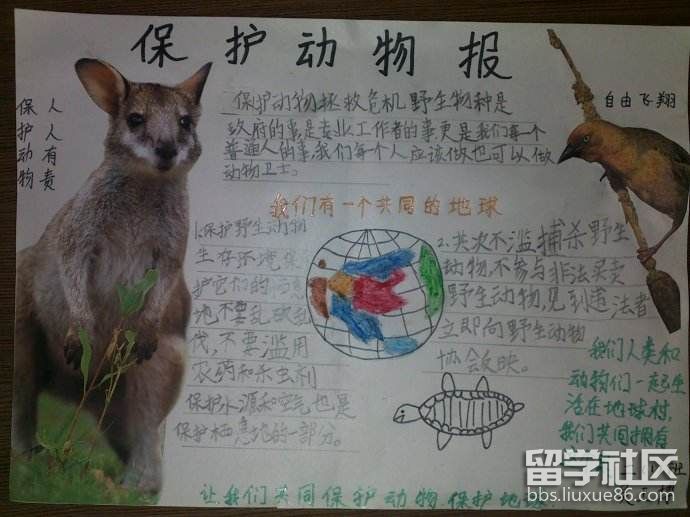 保护动物报
保护动物
人人有责
保护动物拯救危机野生物种是
政府的事,是专业工作者的事,更是我们每一个
普通人的事,我们每个人应该做也可以做
动物卫士。
自由飞翔
我们有一个共同的地球
1.保护野生动物
生存环境
护它们的
地不要乱砍乱
伐,不要滥用
农药和杀虫剂
保护水源和空气也是
保护栖息地的一部分。
2.其次不滥捕杀野生
动物,不参与非法买卖
野生动物,见到违法者
立即向野生动物
协会反映。
我们人类和
动物们一起生
活在地球村
我们共同拥有
让我们共同保护动物保护地球
留学社区
bbs.liuxue86.com